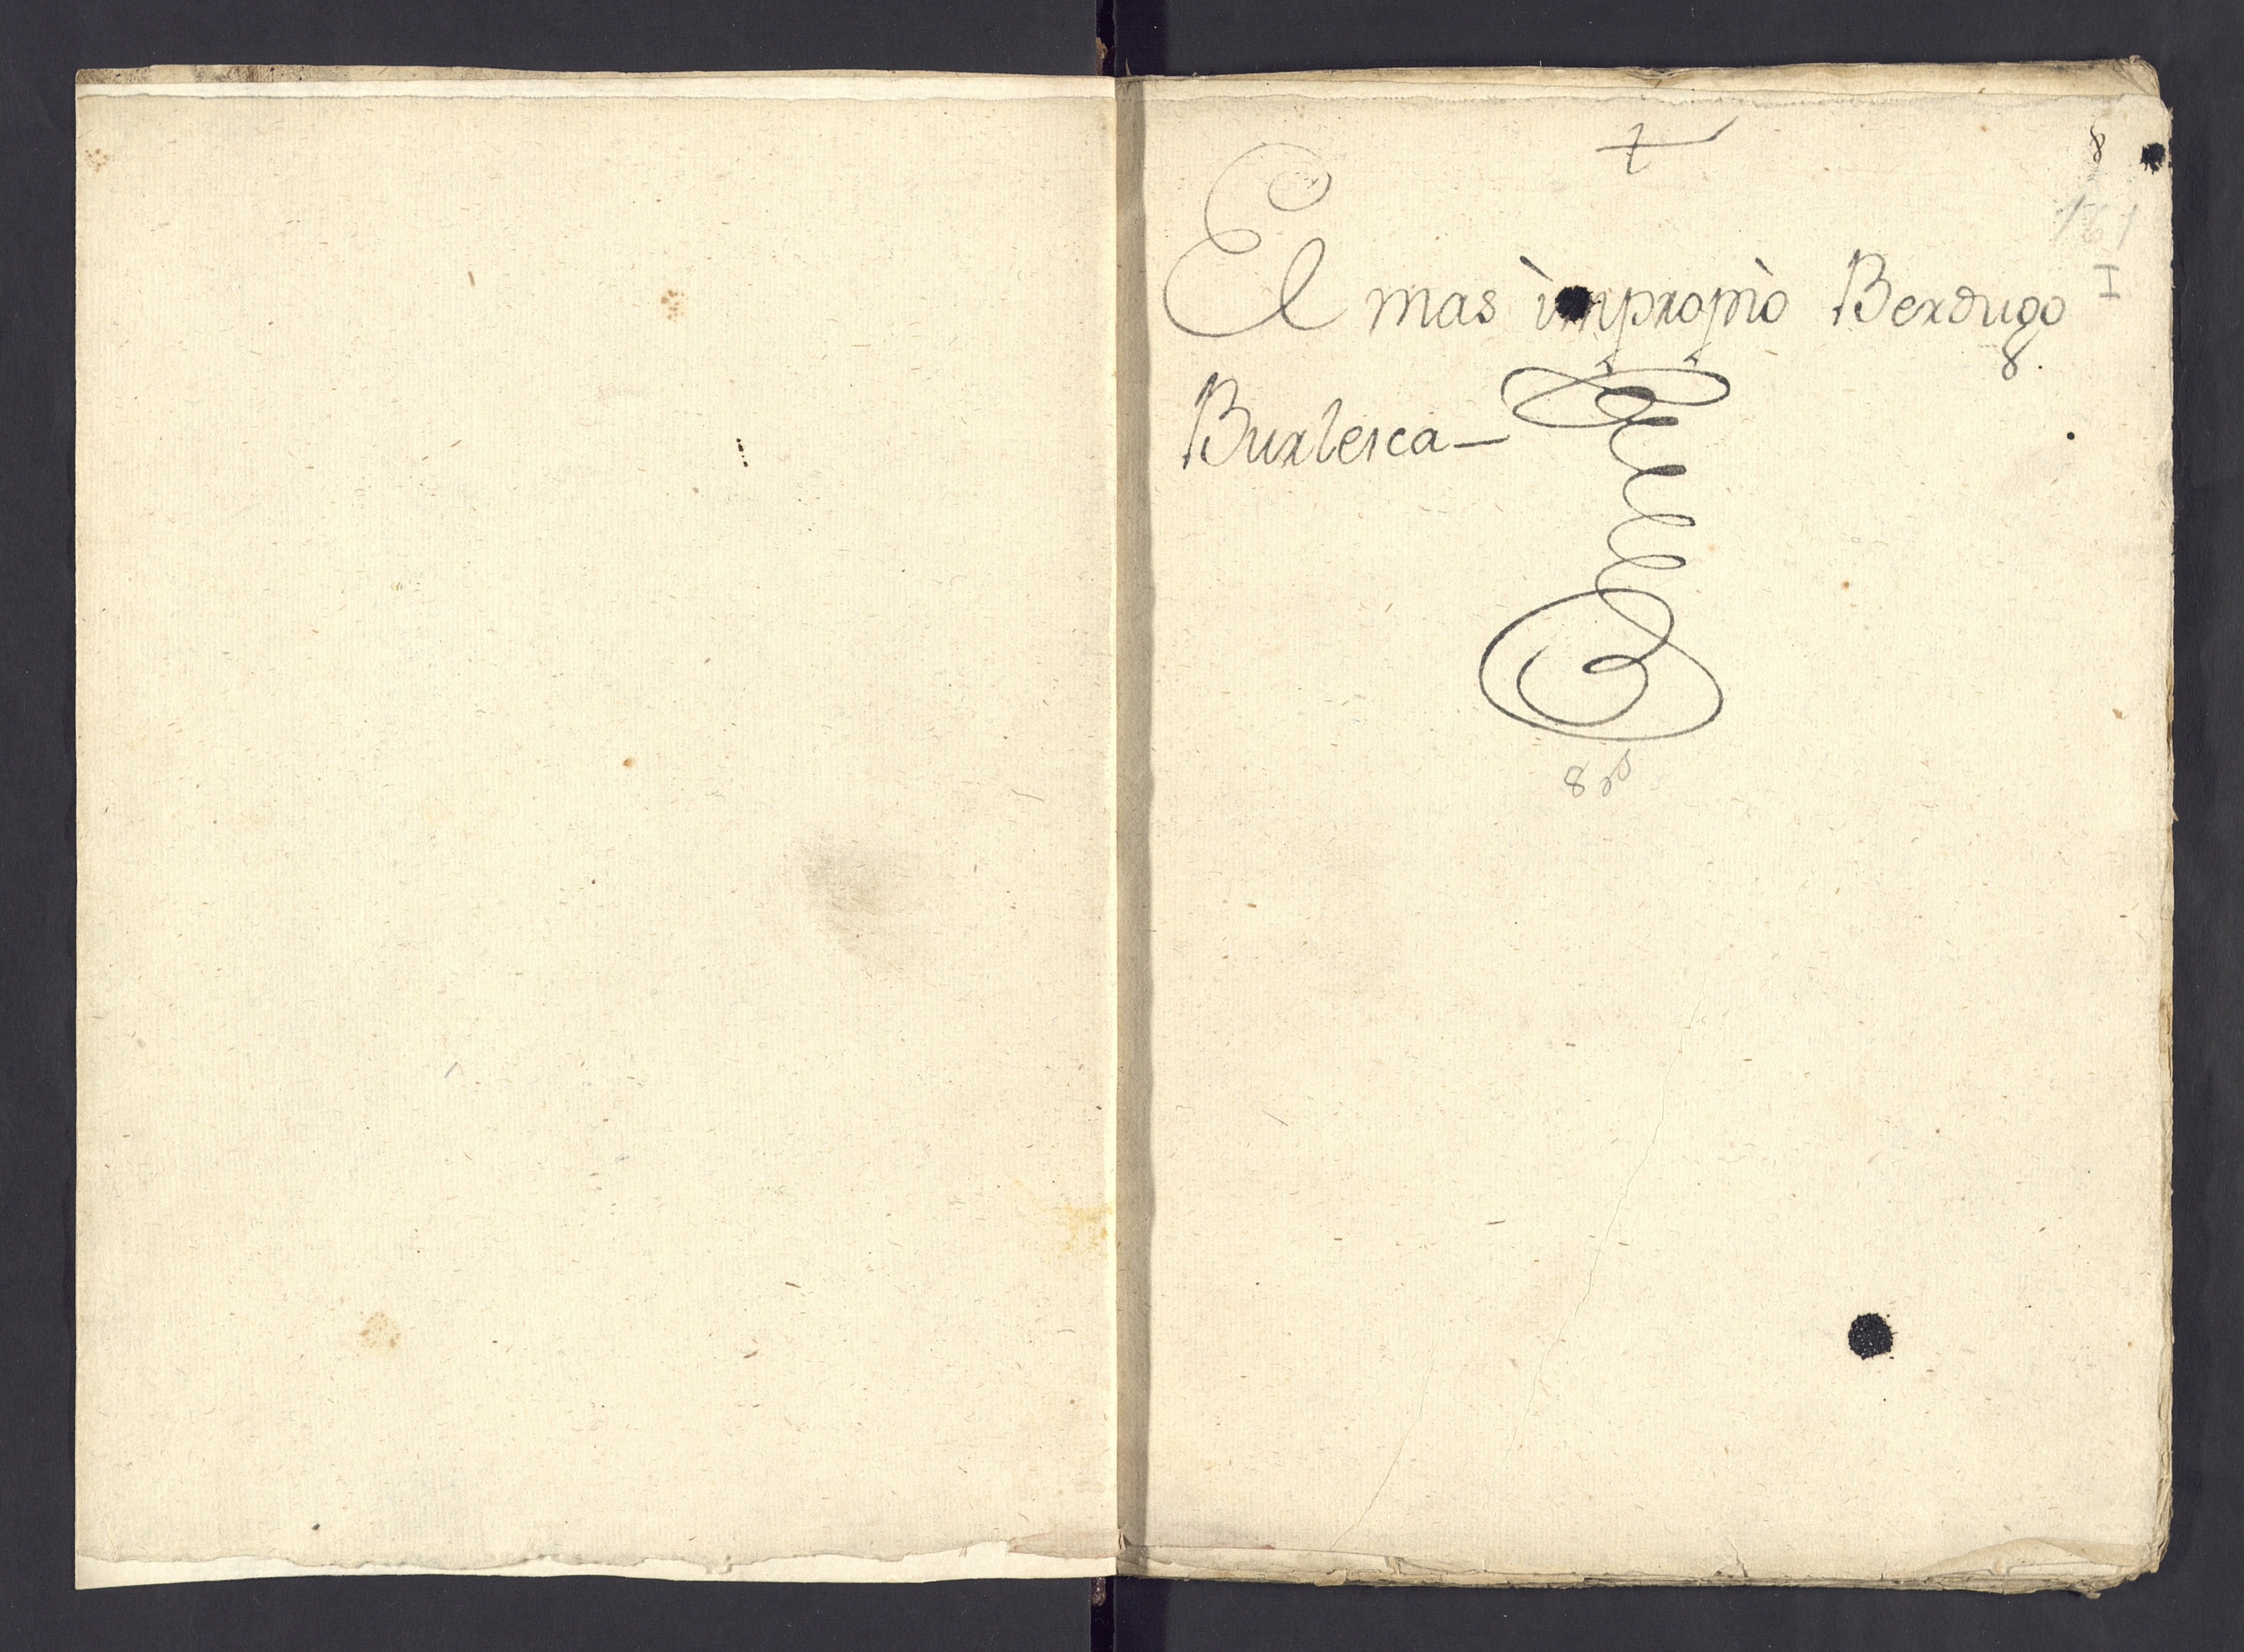 8
161
I
El mas impropio Berdugo
Burlesca—